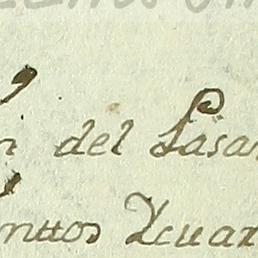 n del Pasa
nttos Ycuar